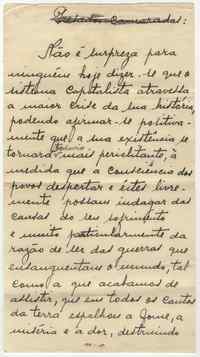 Prezados Camaradas:
Não é surpreza para
ninguém hoje dizer-se que o
sistema capitalista atravessa
a maior crise da sua história,
podendo afirmar-se positiva-
mente que, a sua existência se
tornará mais periclitante, à
medida que a consciência dos
povos despertar e êstes livre-
mente possam indagar das
causas do seu sofrimento
e muito particularmente da
razão de ser das guerras que
ensanguentam o mundo, tal
como a que acabamos de
assistir, que em todos os cantos
da terra espalhou a fome, a
miséria e a dor, destruindo